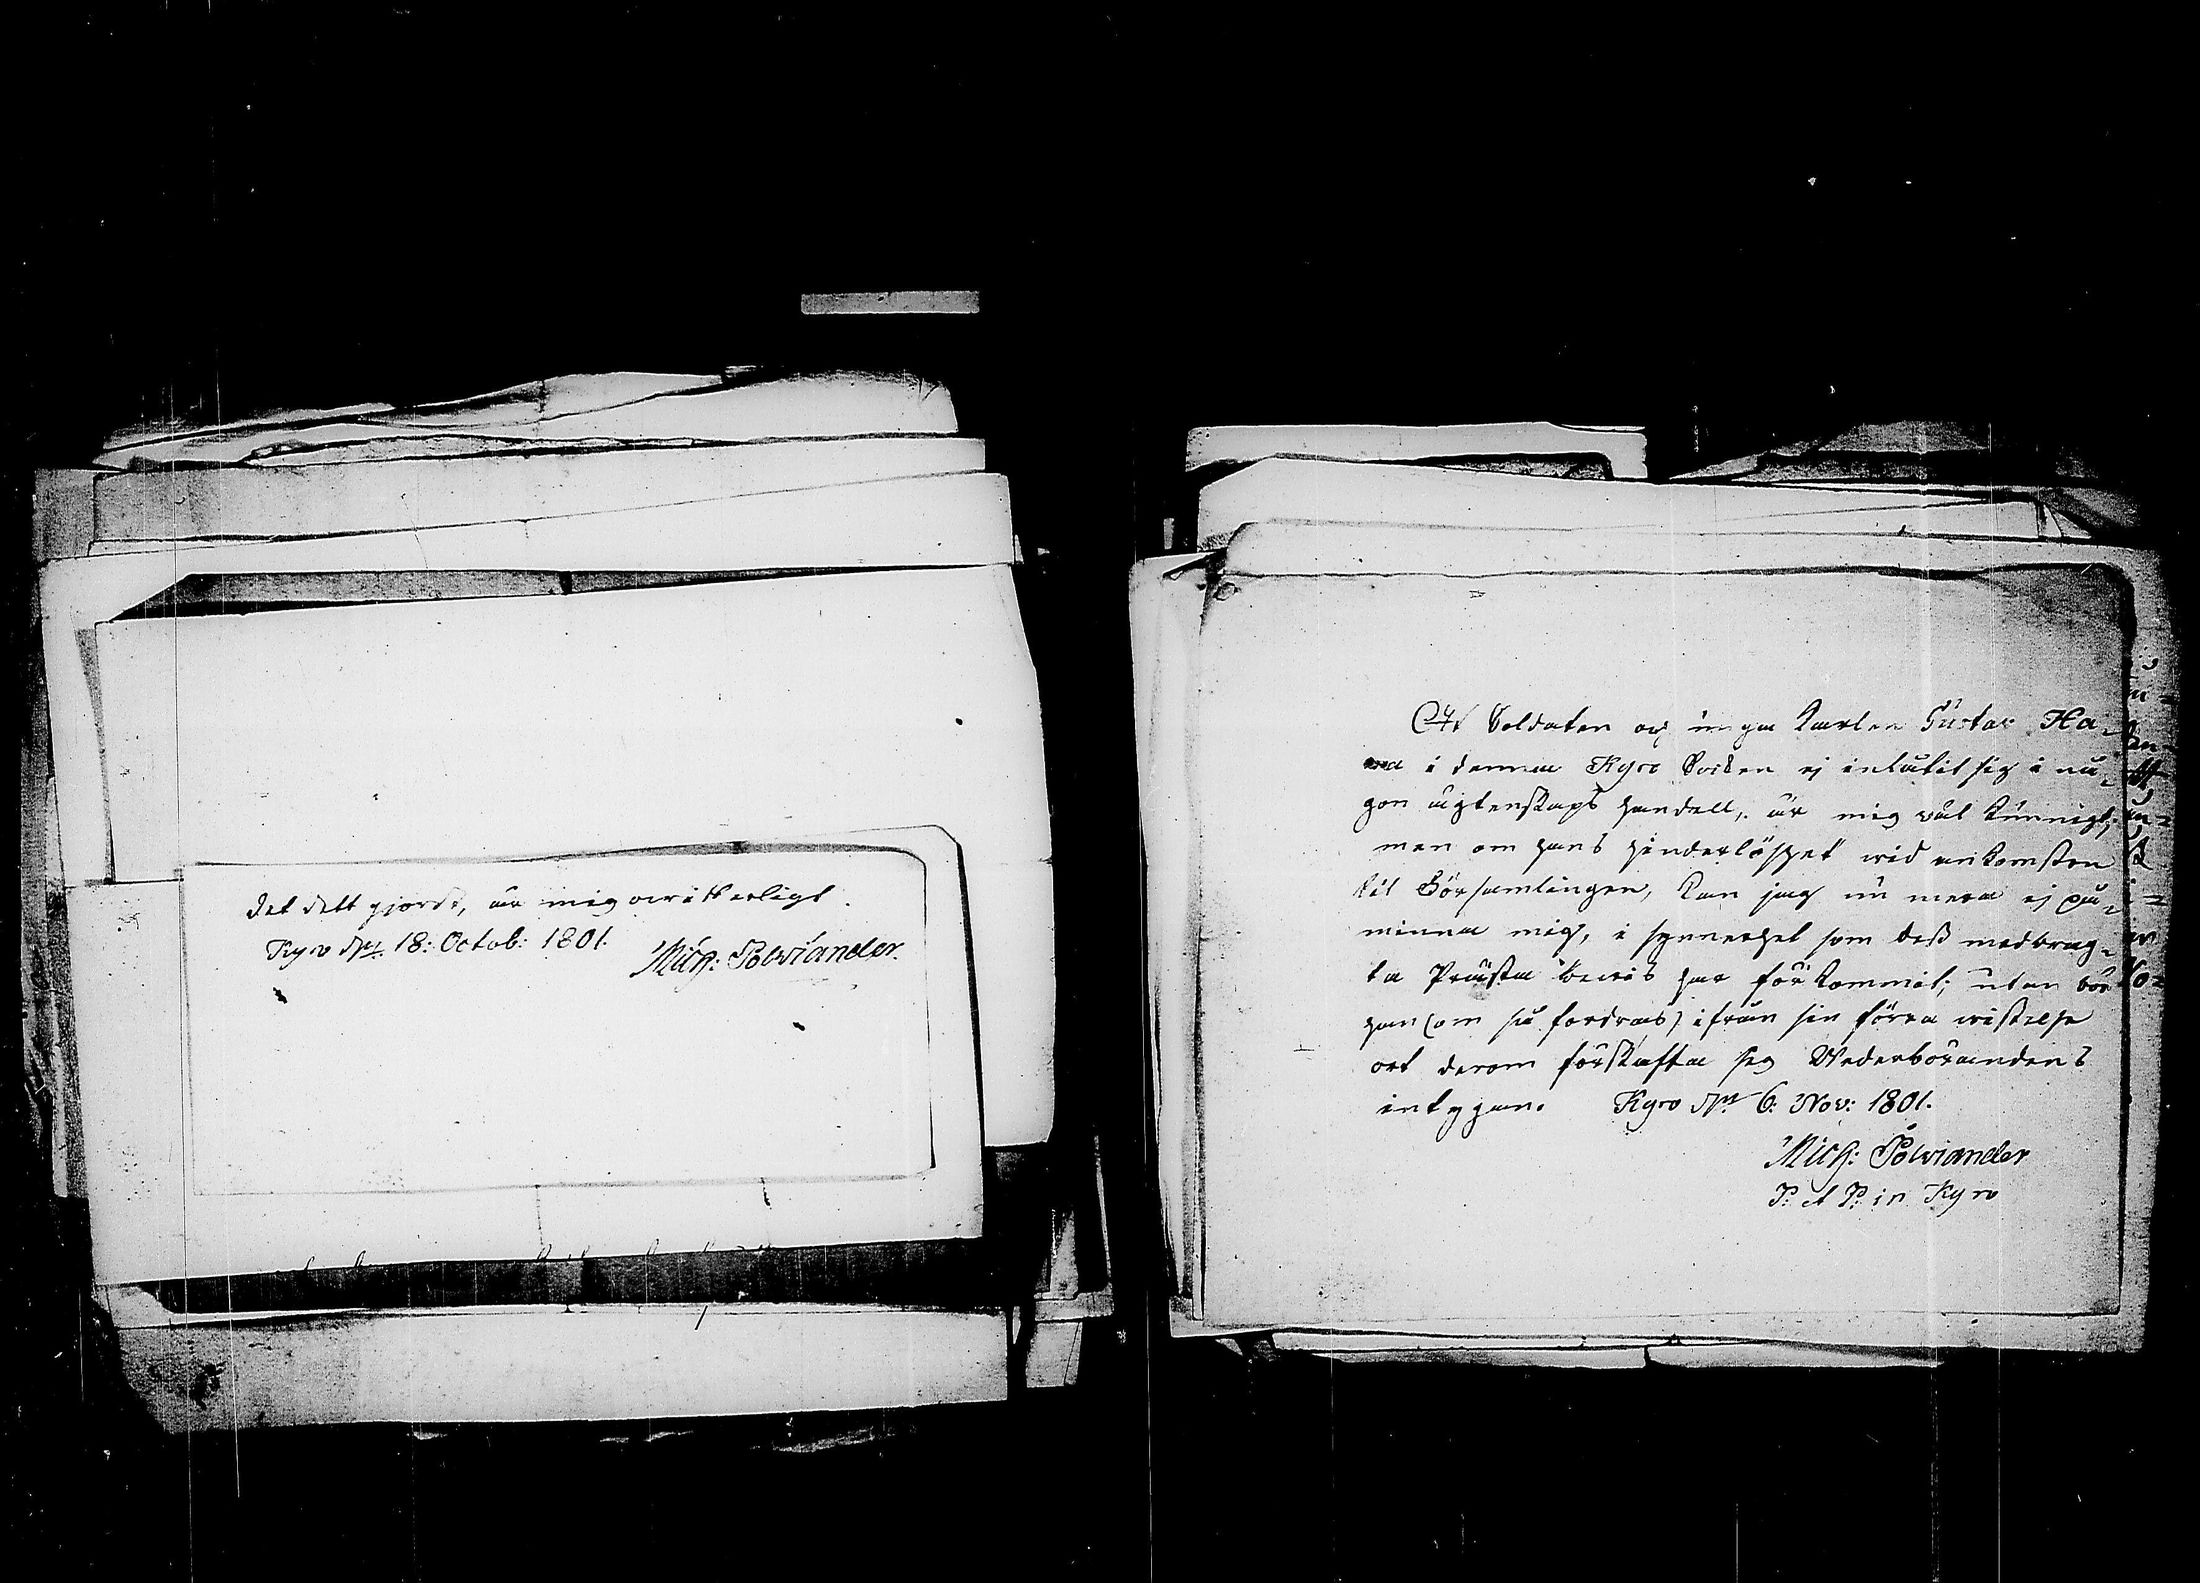 Det dett gjorde, är mig owitterligt.
Kyro d. 18: Octob: 1801.
Mich: Polviander.
At Soldaten och unga Karlen Gustav Ha-
na i denna Kyro Socken ej inlåtit sig i nå-
gon ägtenskaps handell, är mig väl kunnigt;
men om hans hinderlöshet wid ankomsten
til Församlingen, kan jag nu mera ej på-
minna mig, i synnerhet som dess medbrag-
ta Prästa bewis har förkommit; utan bör
han (om så fordras) ifrån sin förra wistelse
ort derom förskaffa sig Wederbörandens
intygan. Kyro d. 6: Nov: 1801.
Mich: Polviander
P. et P. in Kyro